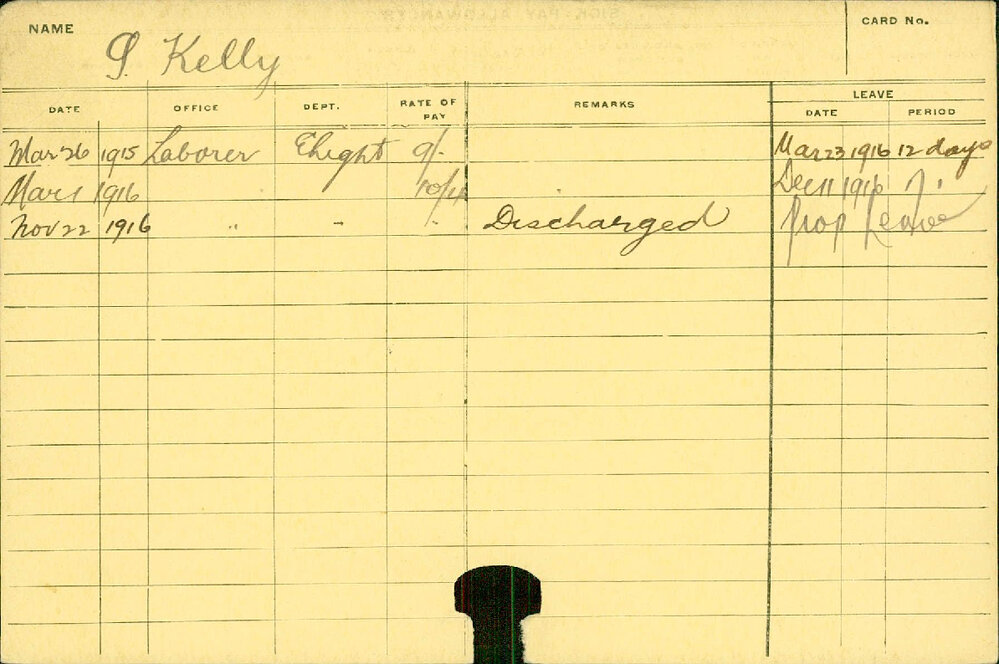 NAME
S. Kelly
CARD No.
DATE OFFICE DEPT. RATE OF PAY REMARKS LEAVE DATE PERIOD
Mar 26 1915 Laborer Elight 9/- Mar 23 1916 12 days
Mar 1 1916 10/4 Dec 11 1916
Nov 22 1916 " - " Discharged Prop Leave